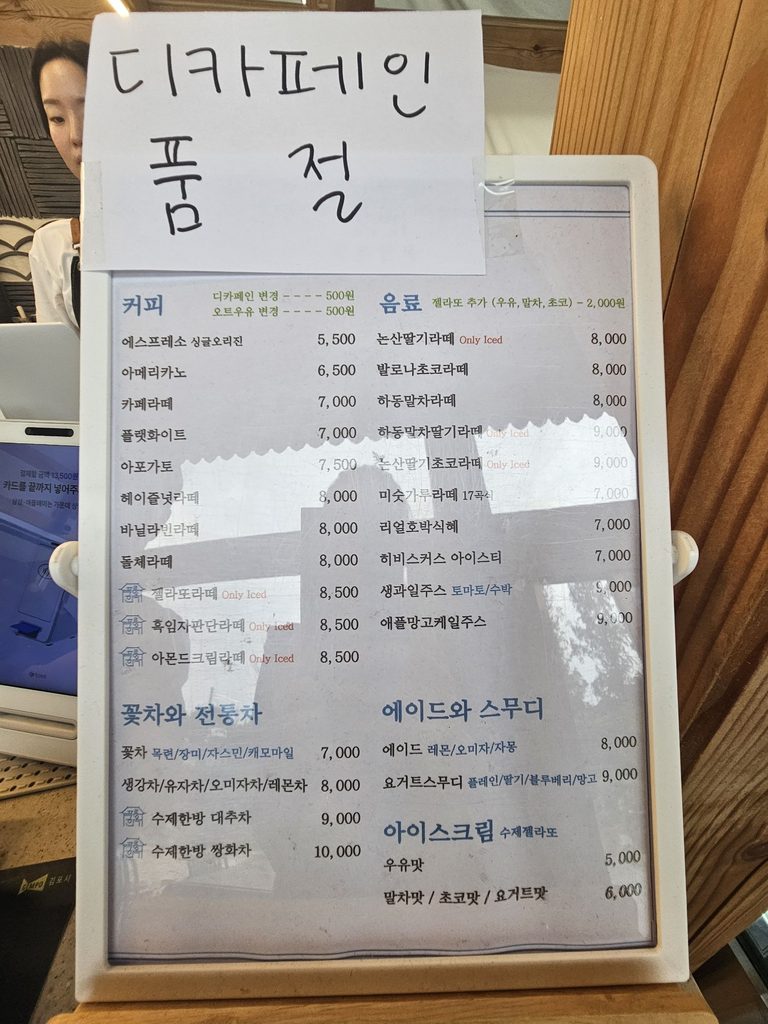 디카페인
품 절
커피
디카페인 변경 ---- 500원
오트우유 변경 ---- 500원
에스프레소 싱글오리진 5,500
아메리카노 6,500
카페라떼 7,000
플랫화이트 7,000
아포가토 7,500
헤이즐넛라떼 8,000
바닐라빈라떼 8,000
돌체라떼 8,000
젤라또라떼 Only Iced 8,500
흑임자판단라떼 Only Iced 8,500
아몬드크림라떼 Only Iced 8,500
꽃차와 전통차
꽃차 목련/장미/자스민/캐모마일 7,000
생강차/유자차/오미자차/레몬차 8,000
수제한방 대추차 9,000
수제한방 쌍화차 10,000
음료 젤라또 추가 (우유,말차,초코) - 2,000원
논산딸기라떼 Only Iced 8,000
발로나초코라떼 8,000
하동말차라떼 8,000
하동말차딸기라떼 Only Iced 9,000
논산딸기초코라떼 Only Iced 9,000
미숫가루라떼 17곡식 7,000
리얼호박식혜 7,000
히비스커스 아이스티 7,000
생과일주스 토마토/수박 9,000
애플망고케일주스 9,000
에이드와 스무디
에이드 레몬/오미자/자몽 8,000
요거트스무디 플레인/딸기/블루베리/망고 9,000
아이스크림 수제젤라또
우유맛 5,000
말차맛 / 초코맛 / 요거트맛 6,000
결제할 금액 13,500원
카드를 끝까지 넣어주
김포시